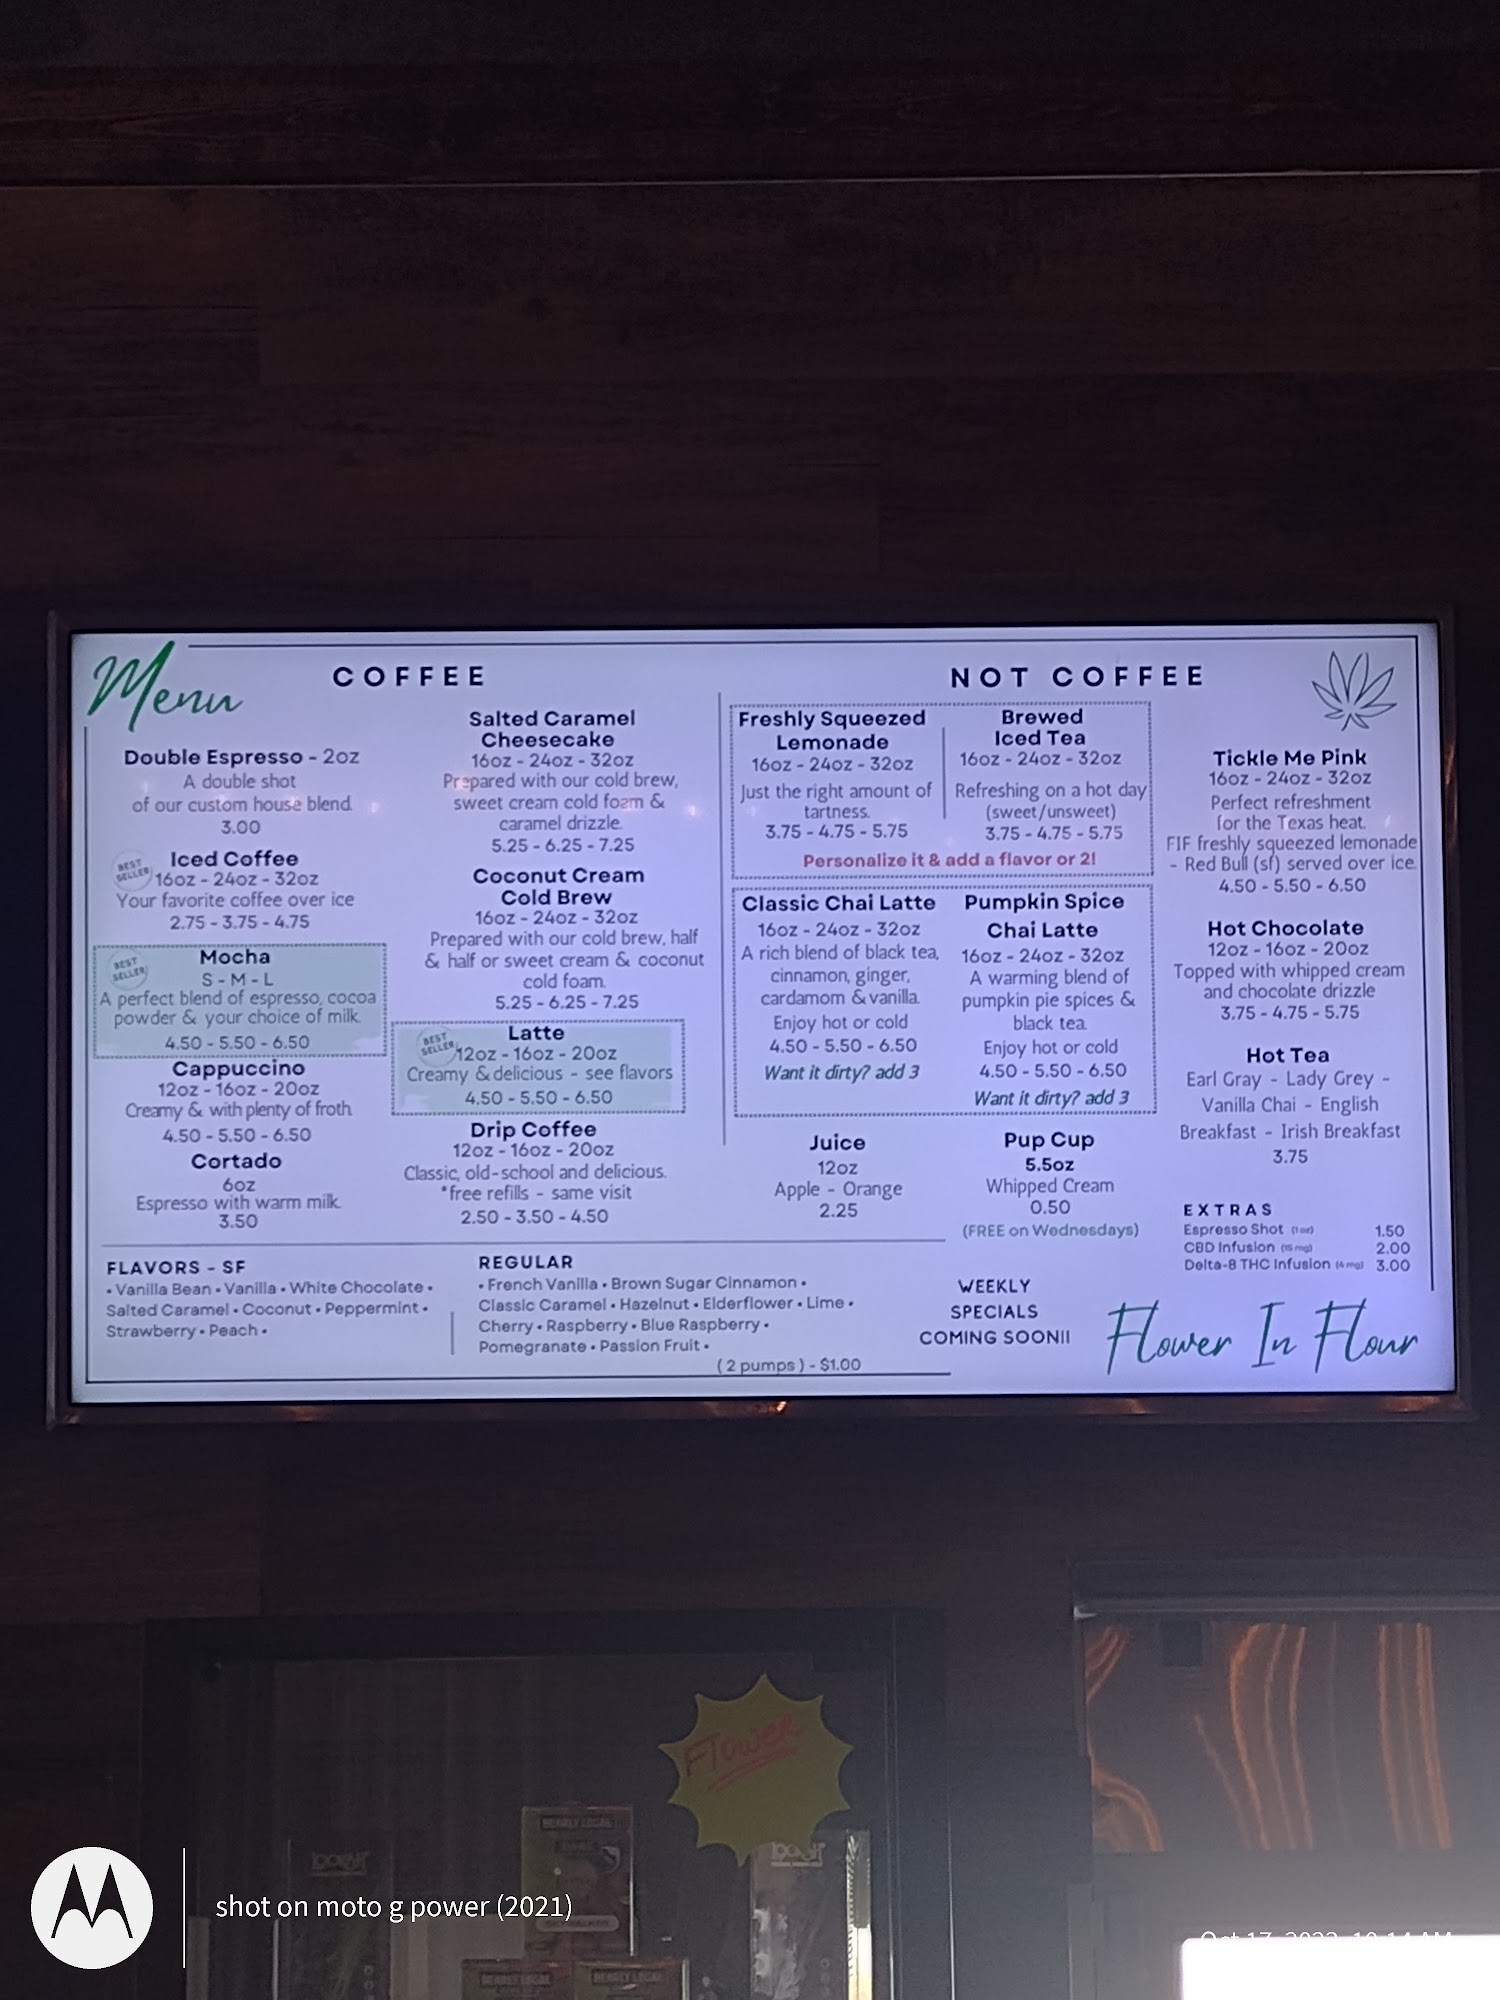 Menu
COFFEE
Double Espresso - 2oz
A double shot
of our custom house blend.
3.00
BEST
SELLER
Iced Coffee
16oz - 24oz - 32oz
Your favorite coffee over ice
2.75 - 3.75 - 4.75
BEST
SELLER
Mocha
S - M - L
A perfect blend of espresso, cocoa
powder & your choice of milk.
4.50 - 5.50 - 6.50
Cappuccino
12oz - 16oz - 20oz
Creamy & with plenty of froth.
4.50 - 5.50 - 6.50
Cortado
6oz
Espresso with warm milk.
3.50
Salted Caramel
Cheesecake
16oz - 24oz - 32oz
Prepared with our cold brew,
sweet cream cold foam &
caramel drizzle.
5.25 - 6.25 - 7.25
Coconut Cream
Cold Brew
16oz - 24oz - 32oz
Prepared with our cold brew, half
& half or sweet cream & coconut
cold foam.
5.25 - 6.25 - 7.25
BEST
SELLER
Latte
12oz - 16oz - 20oz
Creamy & delicious - see flavors
4.50 - 5.50 - 6.50
Drip Coffee
12oz - 16oz - 20oz
Classic, old-school and delicious.
*free refills - same visit
2.50 - 3.50 - 4.50
NOT COFFEE
Freshly Squeezed
Lemonade
16oz - 24oz - 32oz
Just the right amount of
tartness.
3.75 - 4.75 - 5.75
Brewed
Iced Tea
16oz - 24oz - 32oz
Refreshing on a hot day
(sweet/unsweet)
3.75 - 4.75 - 5.75
Personalize it & add a flavor or 2!
Classic Chai Latte
16oz - 24oz - 32oz
A rich blend of black tea,
cinnamon, ginger,
cardamom & vanilla.
Enjoy hot or cold
4.50 - 5.50 - 6.50
Want it dirty? add 3
Pumpkin Spice
Chai Latte
16oz - 24oz - 32oz
A warming blend of
pumpkin pie spices &
black tea.
Enjoy hot or cold
4.50 - 5.50 - 6.50
Want it dirty? add 3
Juice
12oz
Apple - Orange
2.25
Pup Cup
5.5oz
Whipped Cream
0.50
(FREE on Wednesdays)
Tickle Me Pink
16oz - 24oz - 32oz
Perfect refreshment
for the Texas heat.
FIF freshly squeezed lemonade
- Red Bull (sf) served over ice.
4.50 - 5.50 - 6.50
Hot Chocolate
12oz - 16oz - 20oz
Topped with whipped cream
and chocolate drizzle
3.75 - 4.75 - 5.75
Hot Tea
Earl Gray - Lady Grey -
Vanilla Chai - English
Breakfast - Irish Breakfast
3.75
EXTRAS
Espresso Shot (1 oz) 1.50
CBD Infusion (15 mg) 2.00
Delta-8 THC Infusion (4 mg) 3.00
FLAVORS - SF
• Vanilla Bean • Vanilla • White Chocolate •
Salted Caramel • Coconut • Peppermint •
Strawberry • Peach •
REGULAR
• French Vanilla • Brown Sugar Cinnamon •
Classic Caramel • Hazelnut • Elderflower • Lime •
Cherry • Raspberry • Blue Raspberry •
Pomegranate • Passion Fruit •
( 2 pumps ) - $1.00
WEEKLY
SPECIALS
COMING SOON!!
Flower In Flour
Flower
BEARLY LOCAL
lookah
lookah
BEARLY LOCAL
BEARLY LOCAL
shot on moto g power (2021)